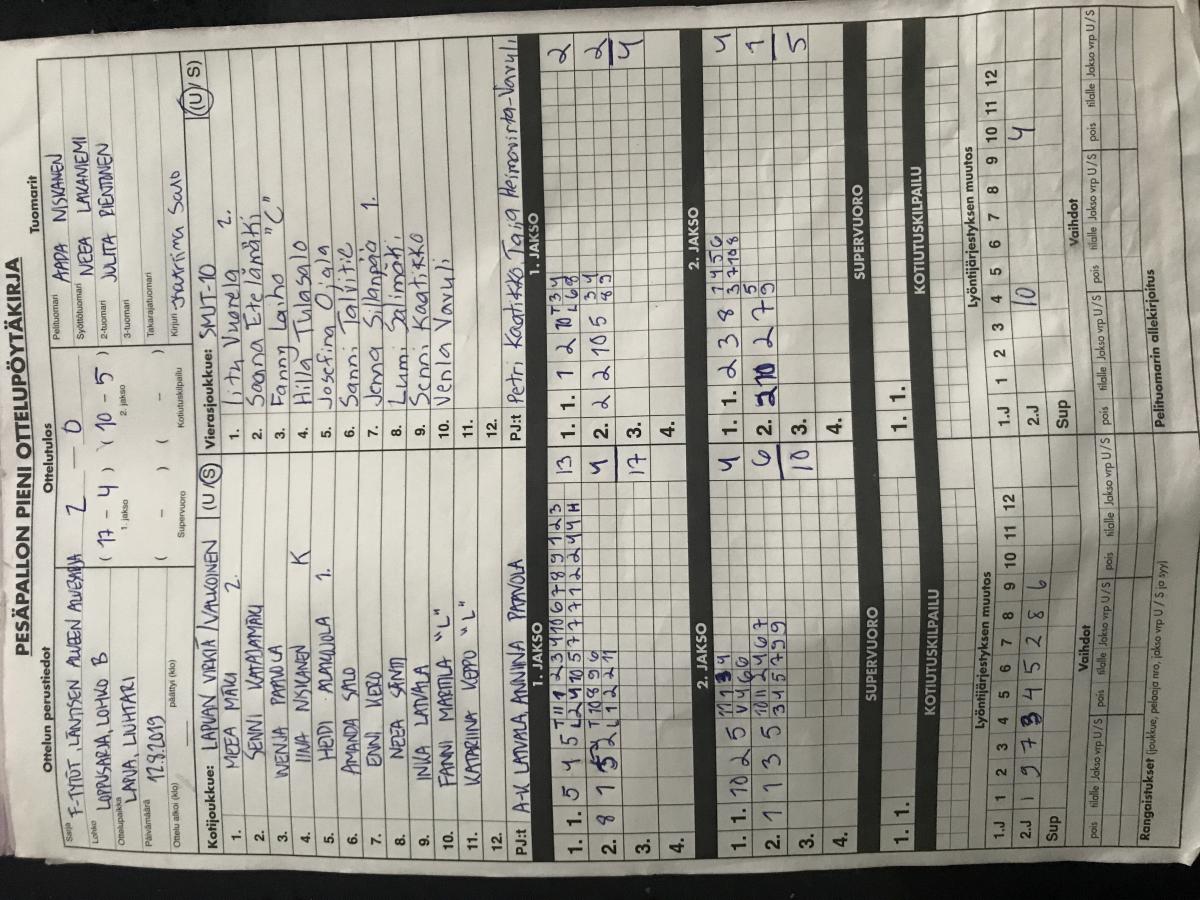 PESÄPALLON PIENI OTTELUPÖYTÄKIRJA
Ottelun perustiedot
Ottelutulos
Tuomarit
Sarja F-TYTÖT, LÄNTISEN ALUEEN ALUESARJA
2 — 0
Pelituomari AADA NISKANEN
Lohko LOPPUSARJA, LOHKO B
( 17 – 4 ) ( 10 – 5 )
1. jakso 2. jakso
Syöttötuomari NEEA LAKANIEMI
Ottelupaikka LAPUA, LIUHTARI
2-tuomari JULIA PIENTONEN
Päivämäärä 12.8.2019
( – ) ( – )
Supervuoro Kotiutuskilpailu
3-tuomari
Takarajatuomari
Ottelu alkoi (klo) päättyi (klo)
Kirjuri Katriina Salo
Kotijoukkue: LAPUAN VIRKIÄ / VALKOINEN (U / S)
1. MEEA MÄKI 2.
2. SENNI KATAJAMÄKI
3. VENJA PAAVOLA
4. IINA NISKANEN K
5. HEIDI ALAKUOLA 1.
6. AMANDA SALO
7. ENNI KERO
8. NEEA SÄNTI
9. INKA LATVALA
10. FANNI MARTTILA "L"
11. KATARIINA KEPPO "L"
12.
PJ:t A-K LATVALA, ANNIINA PAAVOLA
Vierasjoukkue: SMJT-10 (U / S)
1. Litu Vuorela 2.
2. Saana Etelämäki
3. Fanny Laiho "C"
4. Hilla Tulasalo
5. Josefina Ojala
6. Sanni Talvitie
7. Jenna Sillanpää 1.
8. Lumi Salimäki
9. Senni Kaatikko
10. Venla Vavuli
11.
12.
PJ:t Petri Kaatikko Taija Heimovirta-Vavuli
1. JAKSO
1. JAKSO
1. 1. 5 4 5 13
2. 8 1 5 4
3. 17
4.
1. 1. 1 2 10 2
2. 2 2 10 5 2
3. 4
4.
2. JAKSO
2. JAKSO
1. 1. 10 2 5 4
2. 1 1 3 5 6
3. 10
4.
1. 1. 2 3 8 4
2. 10 2 7 1
3. 5
4.
SUPERVUORO
SUPERVUORO
1. 1.
1. 1.
KOTIUTUSKILPAILU
KOTIUTUSKILPAILU
Lyöntijärjestyksen muutos
Lyöntijärjestyksen muutos
1.J 1 2 3 4 5 6 7 8 9 10 11 12
2.J 1 9 7 3 4 5 2 8 6
Sup
1.J 1 2 3 4 5 6 7 8 9 10 11 12
2.J 10 4
Sup
Vaihdot
Vaihdot
pois tilalle Jakso vrp U / S pois tilalle Jakso vrp U / S pois tilalle Jakso vrp U / S
pois tilalle Jakso vrp U / S pois tilalle Jakso vrp U / S pois tilalle Jakso vrp U / S
Rangaistukset (joukkue, pelaaja nro, jakso vrp U / S ja syy)
Pelituomarin allekirjoitus